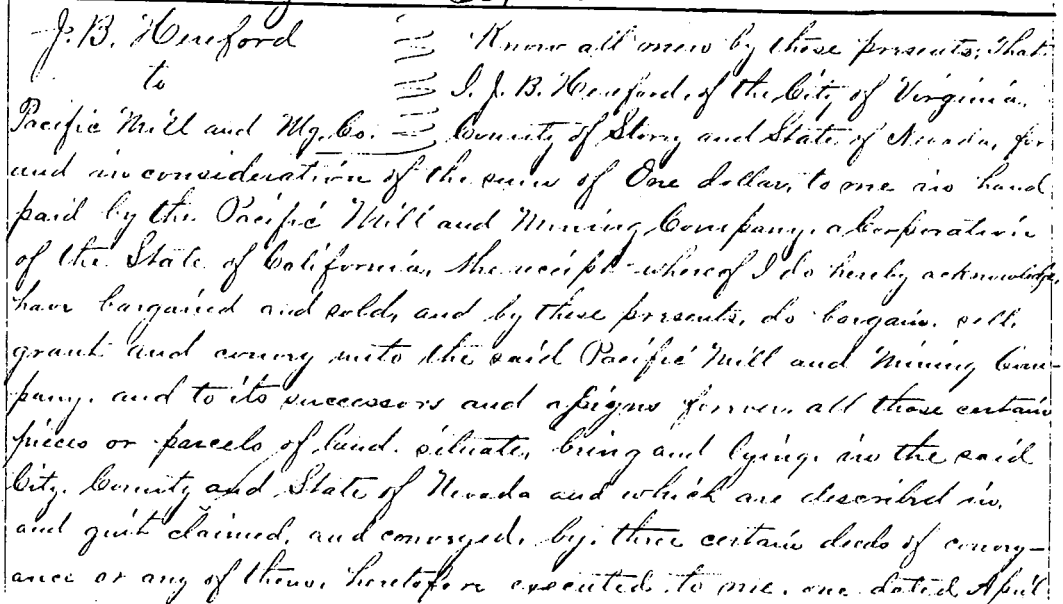 J. B. Hereford
to
Pacific Mill and Mg. Co.
Know all men by these presents; That
I. J. B. Hereford, of the City of Virginia,
County of Story and State of Nevada, for
and in consideration of the sum of One dollar, to me in hand
paid by the Pacific Mill and Mining Company, a Corporation
of the State of California, the receipt whereof I do hereby acknowledge,
have bargained and sold, and by these presents, do bargain, sell,
grant and convey unto the said Pacific Mill and Mining Com-
pany, and to its successors and assigns forever, all those certain
pieces or parcels of land, situate, being and lying, in the said
City, County and State of Nevada and which are described in,
and quit claimed, and conveyed, by, three certain deeds of convey-
ance or any of them, heretofore executed, to me, one dated April